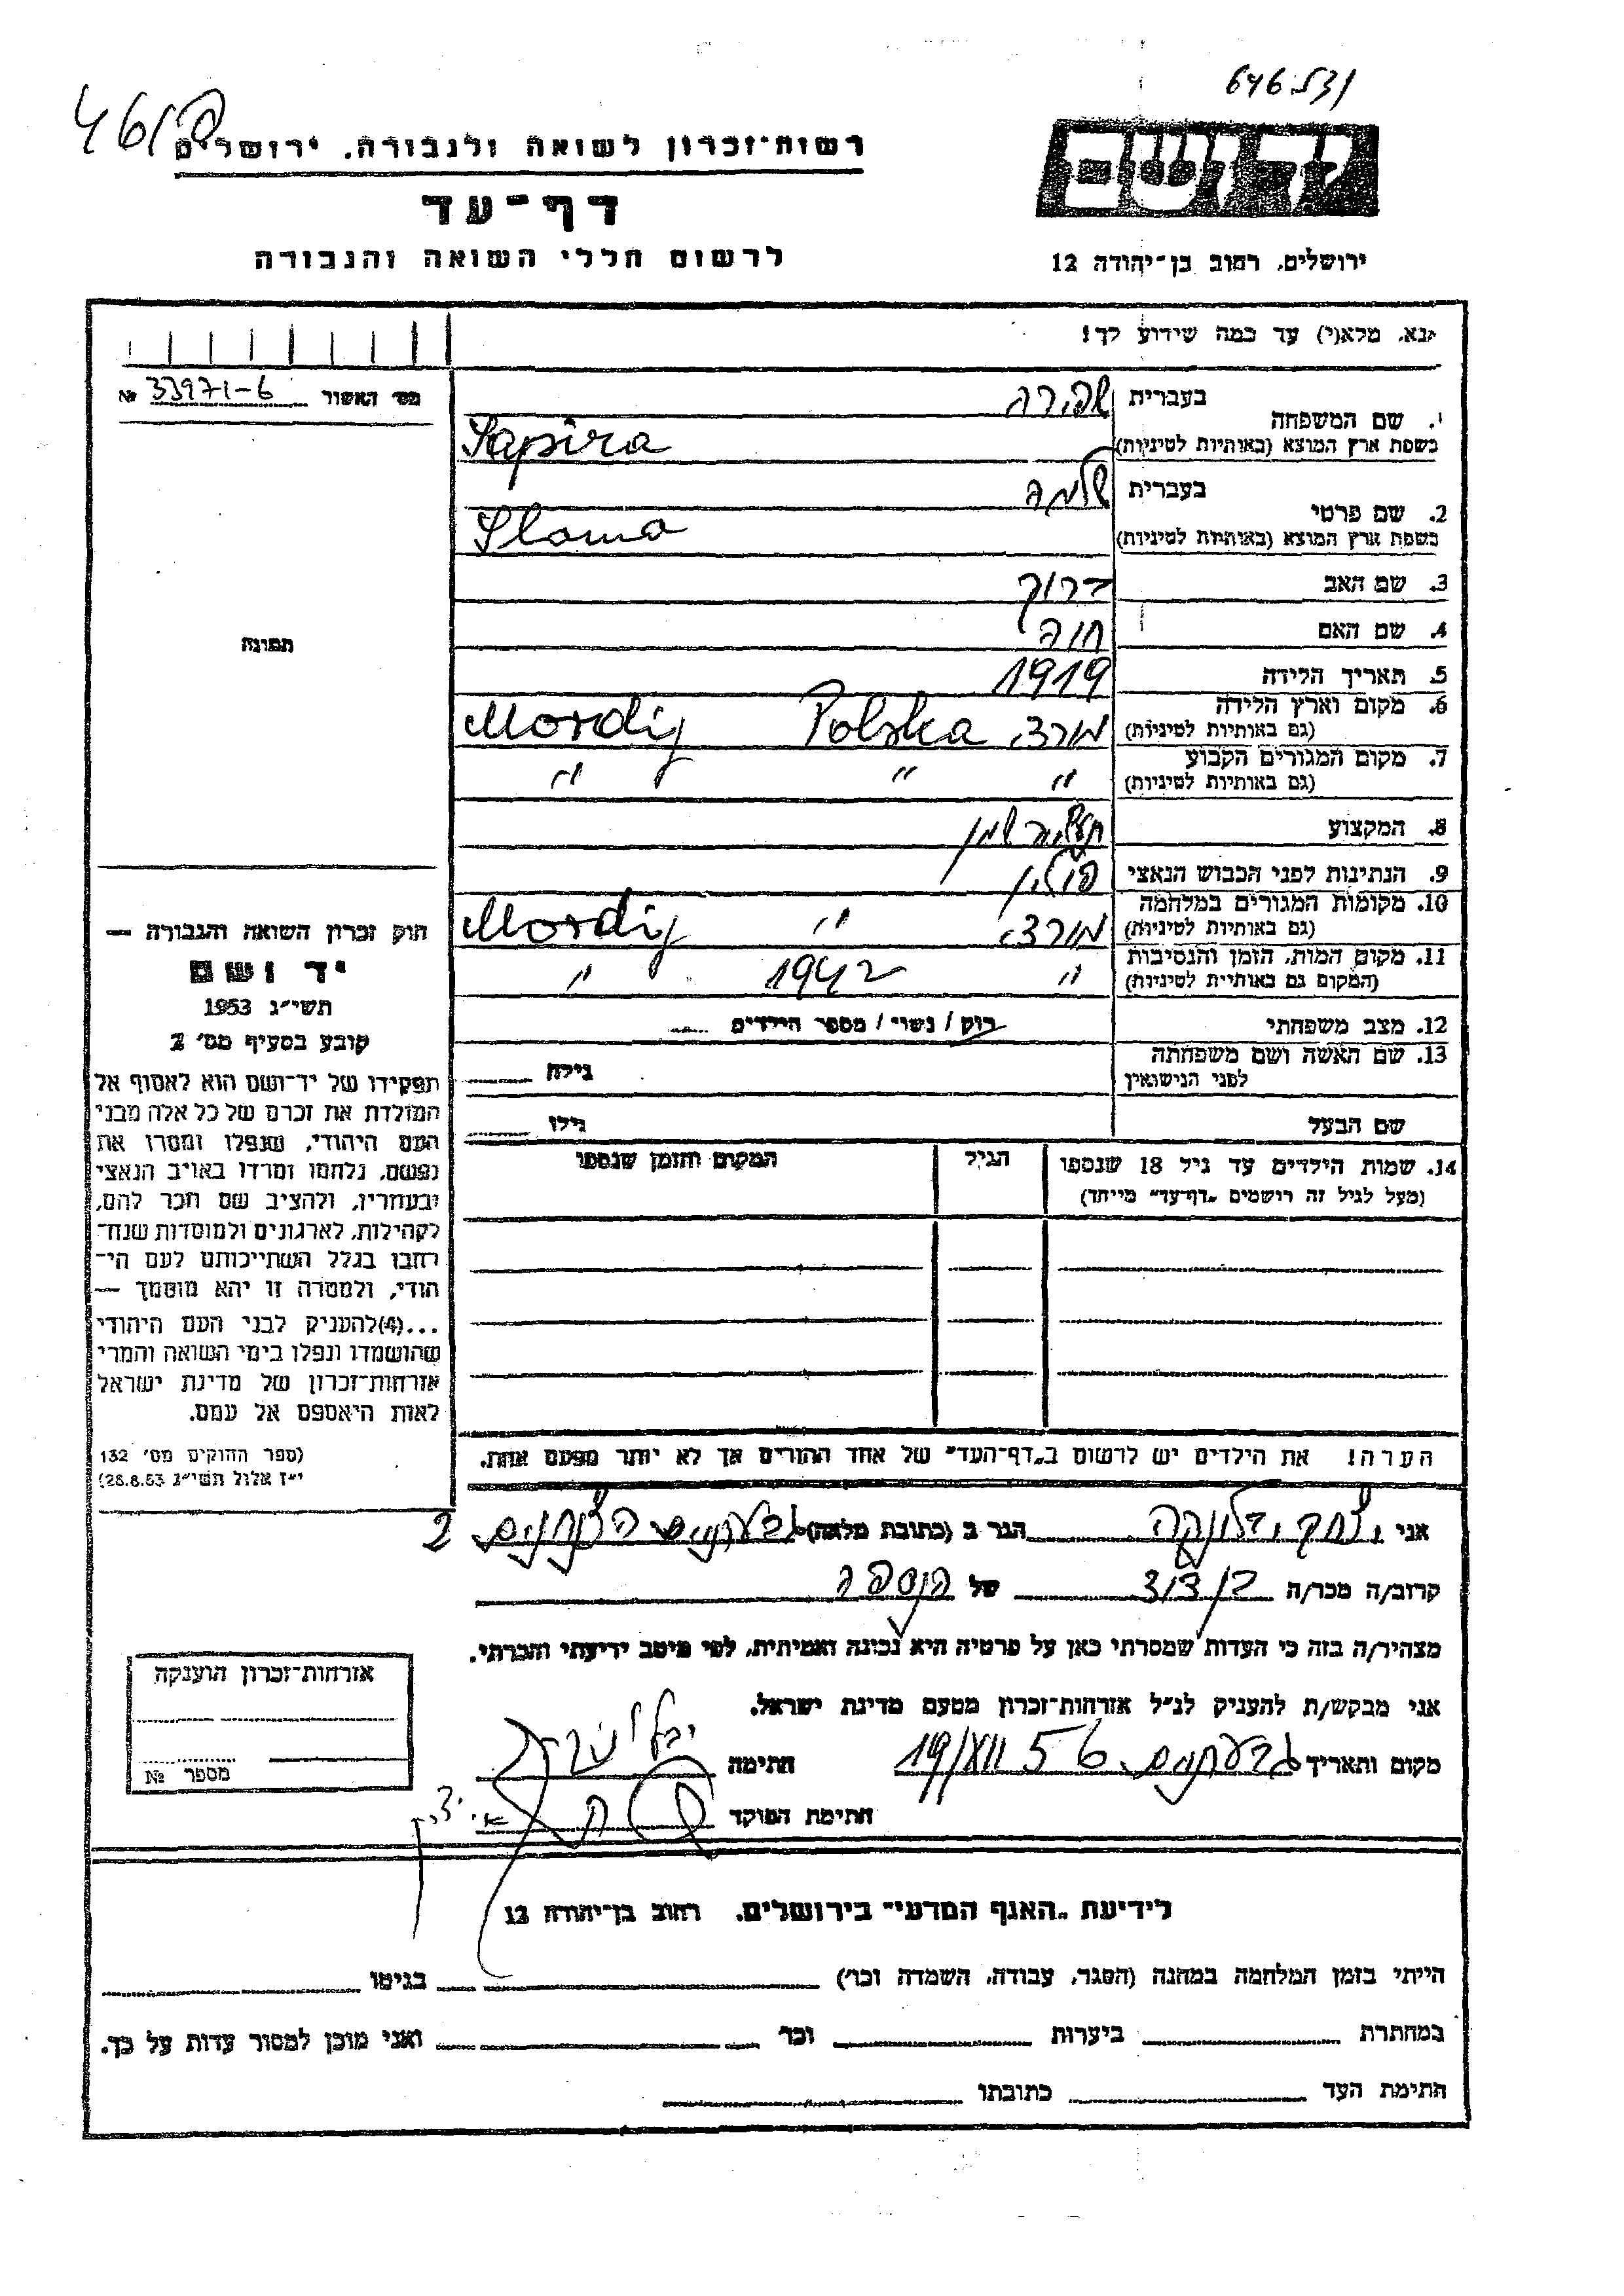 646531
רשות־זכרון לשואה ולגבורה, ירושלים
יד ושם
דף־עד
לרשום חללי השואה והגבורה
ירושלים, רחוב בן־יהודה 12
נא, מלא(י) עד כמה שידוע לך!
מס׳ האשור 33971-6 №
1. שם המשפחה
בעברית שפירה
בשפת ארץ המוצא (באותיות לטיניות) Sapira
2. שם פרטי
בעברית שלמה
בשפת ארץ המוצא (באותיות לטיניות) Sloma
3. שם האב ברוך
4. שם האם חוה
5. תאריך הלידה 1919
6. מקום וארץ הלידה
(גם באותיות לטיניות) מורדי Polska Mordy
7. מקום המגורים הקבוע
(גם באותיות לטיניות) " " "
8. המקצוע תעשית שמן
9. הנתינות לפני הכבוש הנאצי פולין
10. מקומות המגורים במלחמה
(גם באותיות לטיניות) מורדי " Mordy
11. מקום המות, הזמן והנסיבות
(המקום גם באותיות לטיניות) " 1942 "
12. מצב משפחתי רוק / נשוי / מספר הילדים
13. שם האשה ושם משפחתה
לפני הנישואין גילה
שם הבעל גילו
14. שמות הילדים עד גיל 18 שנספו הגיל המקום והזמן שנספו
(מעל לגיל זה רושמים „דף־עד" מייחד)
הערה! את הילדים יש לרשום ב„דף־העד" של אחד ההורים אך לא יותר מפעם אחת.
תמונה
חוק זכרון השואה והגבורה —
יד ושם
תשי״ג 1953
קובע בסעיף מס׳ 2
תפקידו של יד־ושם הוא לאסוף אל
המולדת את זכרם של כל אלה מבני
העם היהודי, שנפלו ומסרו את
נפשם, נלחמו ומרדו באויב הנאצי
ובעוזריו, ולהציב שם וזכר להם,
לקהילות, לארגונים ולמוסדות שנח־
רבו בגלל השתייכותם לעם הי־
הודי, ולמטרה זו יהא מוסמך —
...(4)להעניק לבני העם היהודי
שהושמדו ונפלו בימי השואה והמרי
אזרחות־זכרון של מדינת ישראל
לאות היאספם אל עמם.
(ספר החוקים מס׳ 132
י״ז אלול תשי״ג 28.8.53)
אני יצחק הגר ב (כתובת מלאה) גבעתיים 2
קרוב/ה מכר/ה בן דוד של הנספה
מצהיר/ה בזה כי העדות שמסרתי כאן על פרטיה היא נכונה ואמיתית, לפי מיטב ידיעתי והכרתי.
אני מבקש/ת להעניק לנ״ל אזרחות־זכרון מטעם מדינת ישראל.
מקום ותאריך גבעתיים 19/XII 56 חתימה
חתימת הפוקד
אזרחות־זכרון הוענקה
מספר №
לידיעת „האגף המדעי" בירושלים, רחוב בן־יהודה 12
הייתי בזמן המלחמה במחנה (הסגר, עבודה, השמדה וכר׳) בגיטו
במחתרת ביערות וכר׳ ואני מוכן למסור עדות על כך.
חתימת העד כתובתו